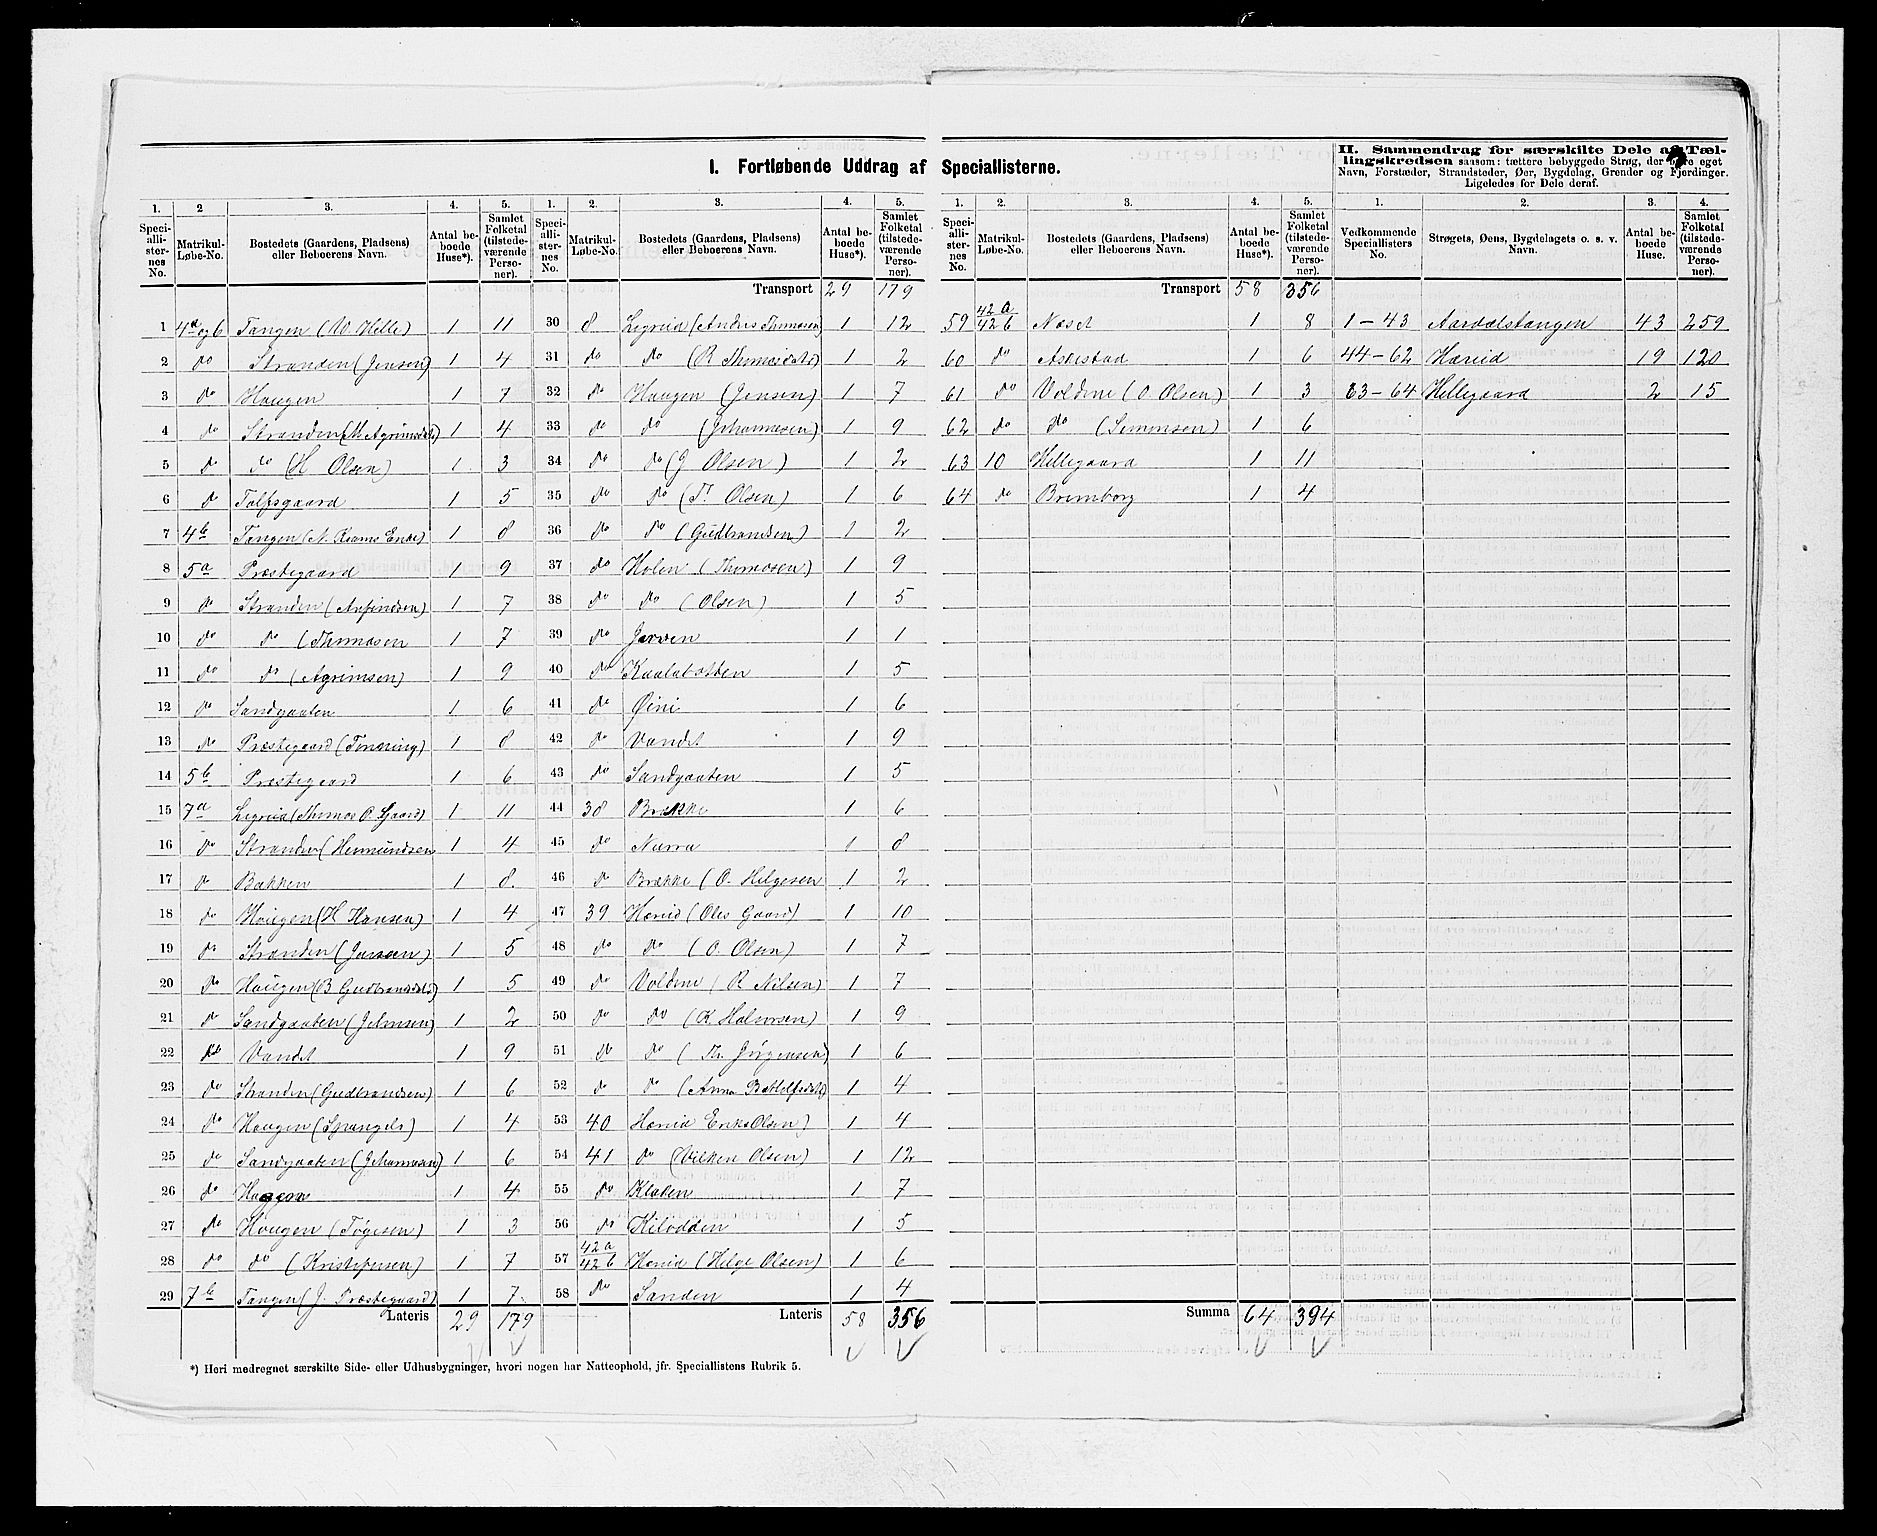 I. Fortløbende Uddrag af Speciallisterne.
II. Sammendrag for særskilte Dele af Tæl-
lingskredsen saasom: tættere bebyggede Strøg, der bære eget
Navn, Forstæder, Strandsteder, Øer, Bygdelag, Grender og Fjerdinger.
Ligeledes for Dele deraf.
1. 2 3. 4. 5.
Speciallisternes No. Matrikul-Løbe-No. Bostedets (Gaardens, Pladsens) eller Beboerens Navn. Antal beboede Huse*). Samlet Folketal (tilstedeværende Personer).
1 4a og b Tangen (W Hille) 1 11
2 do Stranden (Jensen) 1 4
3 do Haugen 1 7
4 do Stranden (M Agrimsdtr) 1 4
5 do do (H Olsen) 1 3
6 do Tolfsgaard 1 5
7 4b Tangen (N. Enke) 1 8
8 5a Præstegaard 1 9
9 do Stranden (Anfindsen) 1 7
10 do do (Thomasen 1 7
11 do do (Agrimsen) 1 9
12 do Sandgaaten 1 6
13 do Præstegaard 1 8
14 5b Præstegaard 1 6
15 7a Legreid (Thomas O. Gaard) 1 11
16 do Stranden (Hermundsen 1 4
17 do Bakken 1 8
18 do Haugen (H Hansen) 1 4
19 do Stranden (Jensen) 1 5
20 do Haugen (B Gudbrandsdtr) 1 5
21 do Sandgaaten (Johnsen) 1 2
22 do Vandet 1 9
23 do Stranden (Gudbrandsen) 1 6
24 do Haugen (Spangels) 1 4
25 do Sandgaaten (Johannesen) 1 6
26 do 1 4
27 do Haugen (Tøgesen) 1 3
28 do do (Kristofersen) 1 7
29 7b Tangen (J. Præstegaard) 1 7
Lateris 29 179
1. 2. 3. 4. 5.
Speciallisternes No. Matrikul-Løbe-No. Bostedets (Gaardens, Pladsens) eller Beboerens Navn. Antal beboede Huse*). Samlet Folketal (tilstedeværende Personer).
Transport 29 179
30 8 Legreid (Andres Thomasen) 1 12
31 do do (R Thomasdatr) 1 2
32 do Haugen (Jensen) 1 7
33 do do (Johannesen) 1 9
34 do do (J Olsen) 1 2
35 do do (Olsen) 1 6
36 do do (Gudbrandsen) 1 2
37 do Holen (Thomasen) 1 9
38 do do (Olsen) 1 5
39 do Jorven 1 1
40 do Kaalabotten 1 5
41 do Øini 1 6
42 do Vandet 1 9
43 do Sandgaaten 1 5
44 38 Brække 1 6
45 do Nærra 1 8
46 do Brække (O. Helgesen 1 2
47 39 Hæreid (Oles Gaard) 1 10
48 do do (O. Olsen) 1 7
49 do Voldene (R Nilsen) 1 7
50 do do (K Halvorsen) 1 9
51 do do (Th. Jørgensen) 1 6
52 do do (Anna) 1 4
53 40 Hæreid Erik Olsen) 1 4
54 41 do (Vilken Olsen) 1 12
55 do Kladen 1 7
56 do Kilodden 1 5
57 42a/42b Hæreid (Helge Olsen) 1 6
58 do Sanden 1 4
Lateris 58 356
1. 2. 3. 4. 5.
Speciallisternes No. Matrikul-Løbe-No. Bostedets (Gaardens, Pladsens) eller Beboerens Navn. Antal beboede Huse*). Samlet Folketal (tilstedeværende Personer).
Transport 58 356
59 42a/42b Næset 1 8
60 do Askestad 1 6
61 do Voldene (O. Olsen) 1 3
62 do do (Simonsen) 1 6
63 10 Hillegaard 1 11
64 do Bremborg 1 4
Summa 64 394
1. 2. 3. 4.
Vedkommende Speciallisters No. Strøgets, Øens, Bygdelagets o. s. v. Navn. Antal beboede Huse. Samlet Folketal (tilstedeværende Personer).
1-43 Aardalstangen 43 259
44-62 Hæreid 19 120
63-64 Hillegaard 2 15
*) Heri medregnet særskilte Side- eller Udhusbygninger, hvori nogen har Natteophold, jfr. Speciallistens Rubrik 5.